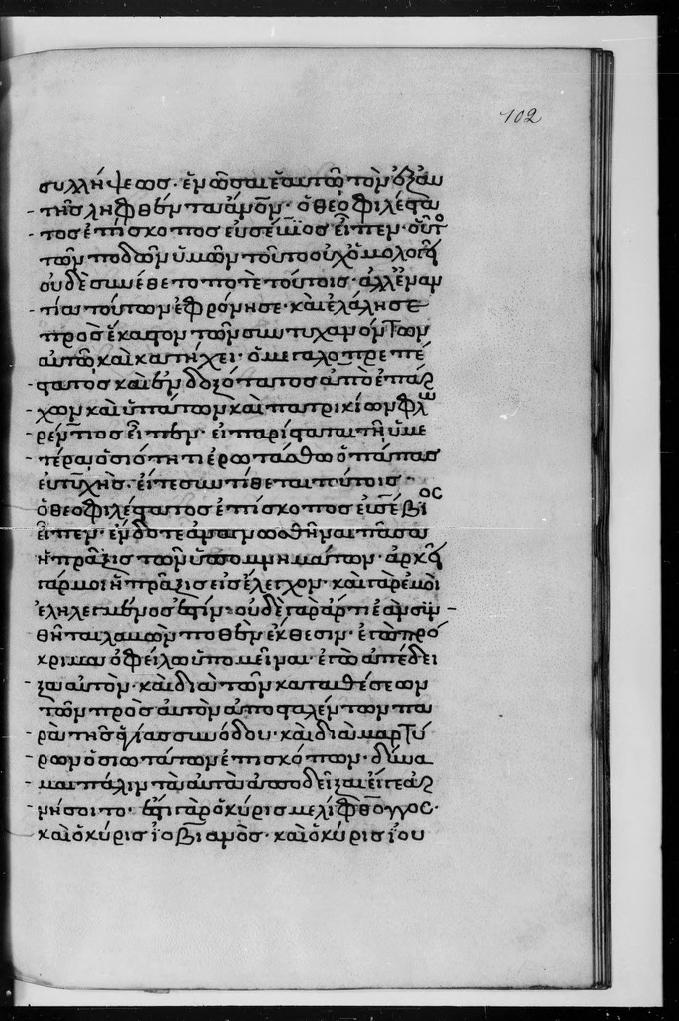 102
συλλήψεως· ἐν ὧσαι ἑαυτῶ τὸν ὄξαν
τῆς ληφθὲν τα ἀμον· ὁ θεοφιλέστα
τος ἐπίσκοπος εὐσέβιος εἶπεν· οὕτο
τῶν ποδῶν ὑμῶν τοῦτο οὐχ ὁμολογεῖ
οὐδὲ συνέθετο ποτὲ τούτοις· ἀλλ' ἐναν
τία τούτων ἐφρόνησε· καὶ ἐλάλησε
πρὸς ἕκαστον τῶν συντυχανόντων
αὐτῶ καὶ κατήχει· ὁ μεγαλοπρεπέ
στατος καὶ ἐνδοξότατος ἀπὸ ἐπάρ
χων καὶ ὑπάτων καὶ πατρικίων φλω
ρέντιος εἶπεν· εἰ παρίσταται τῆ ὑμε
τέρα ὁσιότητι ἐρωτάσθω ὁ πάπας
εὐτυχὴς· εἴ γε συντίθεται τούτοις·
ὁ θεοφιλέστατος ἐπίσκοπος εὐσέβιος
εἶπεν· ἔνδοτε ἀναγνωσθῆναι πᾶσα
ἡ πρᾶξις τῶν ὑπομνημάτων· ἀρκεῖ
γάρ μοι ἡ πρᾶξις εἰς ἔλεγχον· καὶ γὰρ ἐμοὶ
ἐληλεγμένος ἐστίν· οὐδὲ γὰρ ἄρτι ἐὰν συν
θῆται λαμων ποθὲν ἔκθεσιν· ἐγὼ πρό
κριμα ὀφείλω ὑπομεῖναι· ἐγὼ ἀπέδει
ξα αὐτὸν· καὶ διὰ τῶν καταθέσεων
τῶν πρὸς αὐτὸν ἀποσταλέντων πα
ρὰ τῆς ἁγίας συνόδου· καὶ διὰ μαρτύ
ρων ὁσιωτάτων ἐπισκόπων· δύνα
μαι πάλιν τὰ αὐτὰ ἀποδεῖξαι εἴγε ἀρ
νήσοιτο· ἔστι γὰρ ὁ κύρις μελίφθογγος·
καὶ ὁ κύρις ἰοβιανὸς· καὶ ὁ κύρις ἰου